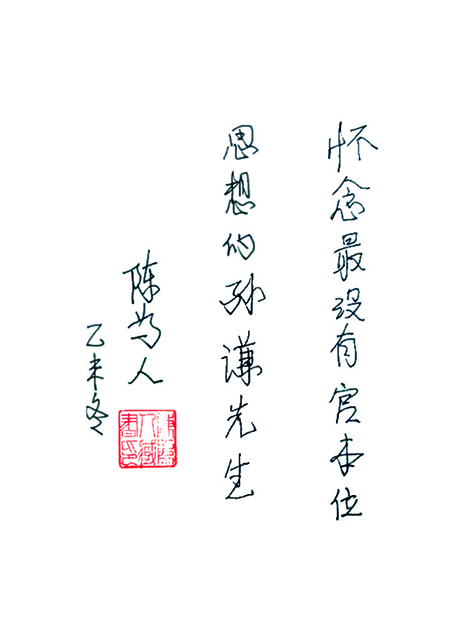 怀念最没有官本位
思想的孙谦先生
陈为人
乙未冬